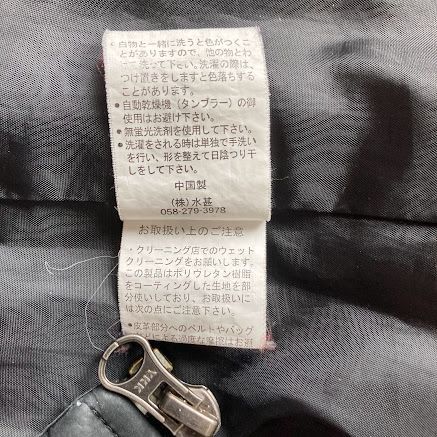 ・白物と一緒に洗うと色がつくこ
とがありますので、他の物とわ
けて洗って下さい。洗濯の際は、
つけ置きをしますと色落ちする
ことがあります。
●自動乾燥機（タンブラー）の御
使用はお避け下さい。
●無蛍光洗剤を使用して下さい。
●洗濯をされる時は単独で手洗い
を行い、形を整えて日陰つり干
しをして下さい。
中国製
(株)水甚
058-279-3978
お取扱い上のご注意
・クリーニング店でのウェット
クリーニングをお願いします。
この製品はポリウレタン樹脂
をコーティングした生地を部
分使いしており、お取扱いに
は次の点にご注意下さい。
●皮革部分へのベルトやバッグ
による過度な摩擦はお避
YKK